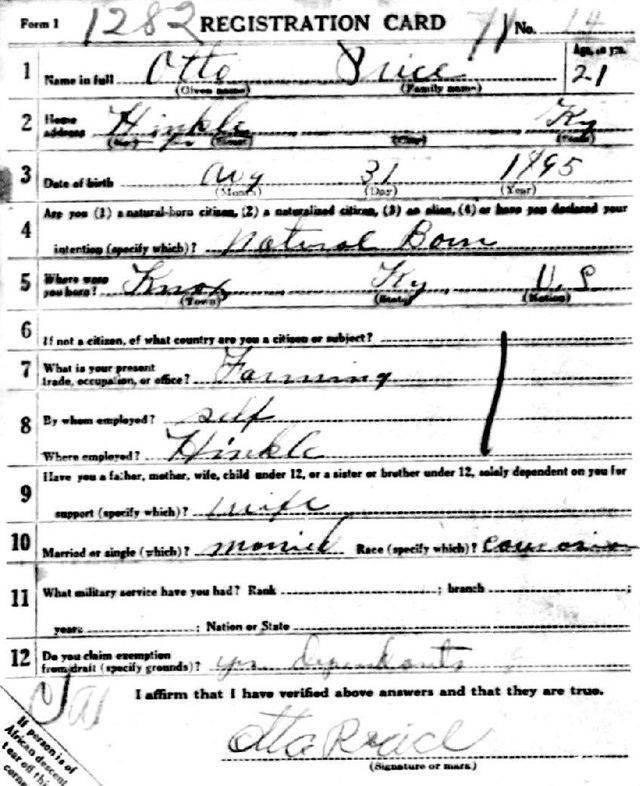 Form 1 1282 REGISTRATION CARD No. 14
1 Name in full Otto Price Age, in yrs. 21
(Given name) (Family name)
2 Home address Hinkle Ky
(No.) (Street) (City) (State)
3 Date of birth Aug 31 1895
(Month) (Day) (Year)
4 Are you (1) a natural-born citizen, (2) a naturalized citizen, (3) an alien, (4) or have you declared your
intention (specify which)? Natural Born
5 Where were you born? Knox Ky U.S
(Town) (State) (Nation)
6 If not a citizen, of what country are you a citizen or subject?
7 What is your present
trade, occupation, or office? Farming
8 By whom employed? self
Where employed? Hinkle
9 Have you a father, mother, wife, child under 12, or a sister or brother under 12, solely dependent on you for
support (specify which)? wife
10 Married or single (which)? Race (specify which)?
11 What military service have you had? Rank ; branch ;
years ; Nation or State
12 Do you claim exemption
from draft (specify grounds)? yes dependents
I affirm that I have verified above answers and that they are true.
(Signature or mark)
If person is of
African descent
tear off this
corner